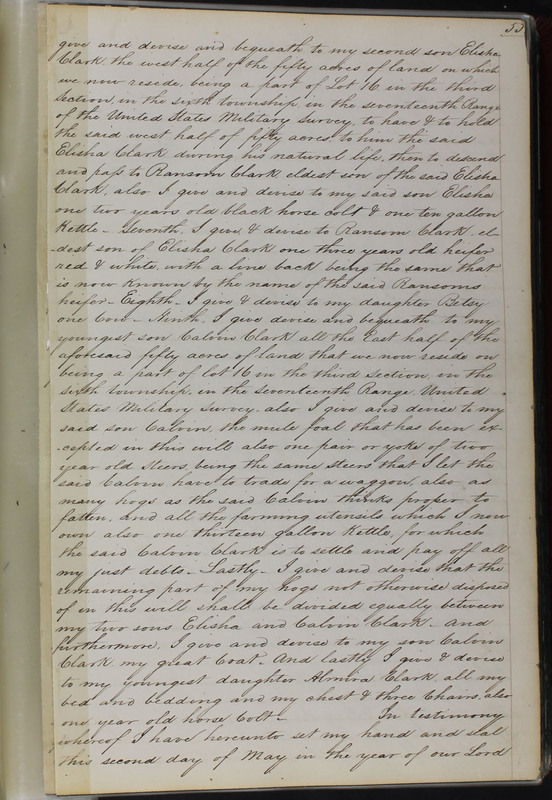 53
give and devise and bequeath to my second son Elisha
Clark, the west half of the fifty acres of land on which
we now reside, being a part of Lot 16 in the third
Section, in the sixth township in the seventeenth Range
of the United States Military survey, to have & to hold
the said west half of fifty acres, to him the said
Elisha Clark during his natural life, then to descend
and pass to Ransom Clark, eldest son of the said Elisha
Clark, also I give and devise to my said son Elisha
one two years old black horse colt & one ten gallon
Kettle – Seventh, I give & devise to Ransom Clark, el-
-dest son of Elisha Clark one three years old heifer
red & white, with a line back being the same that
is now known by the name of the said Ransoms
heifer – Eighth – I give & devise to my daughter Betsy
one Cow – Ninth, I give devise and bequeath to my
youngest son Calvin Clark all the East half of the
aforesaid fifty acres of land that we now reside on
being a part of lot 16 in the third section, in the
sixth township, in the seventeenth Range, United
States Military Survey, also I give and devise to my
said son Calvin, the mule foal that has been ex-
-cepted in this will also one pair or yoke of two
year old Steers, being the same steers that I let the
said Calvin have to trade for a waggon, also, as
many hogs as the said Calvin thinks proper to
fatten, and all the farming utensils which I now
own also one thirteen gallon Kettle, for which
the said Calvin Clark is to settle and pay off all
my just debts – Lastly – I give and devise that the
remaining part of my hogs not otherwise disposed
of in this will shall be divided equally between
my two sons Elisha and Calvin Clark – And
furthermore, I give and devise to my son Calvin
Clark, my great Coat – And lastly I give & devise
to my youngest daughter Almira Clark, all my
bed and bedding and my chest & three Chairs, also
one year old horse Colt – In testimony
whereof I have hereunto set my hand and seal
this second day of May in the year of our Lord